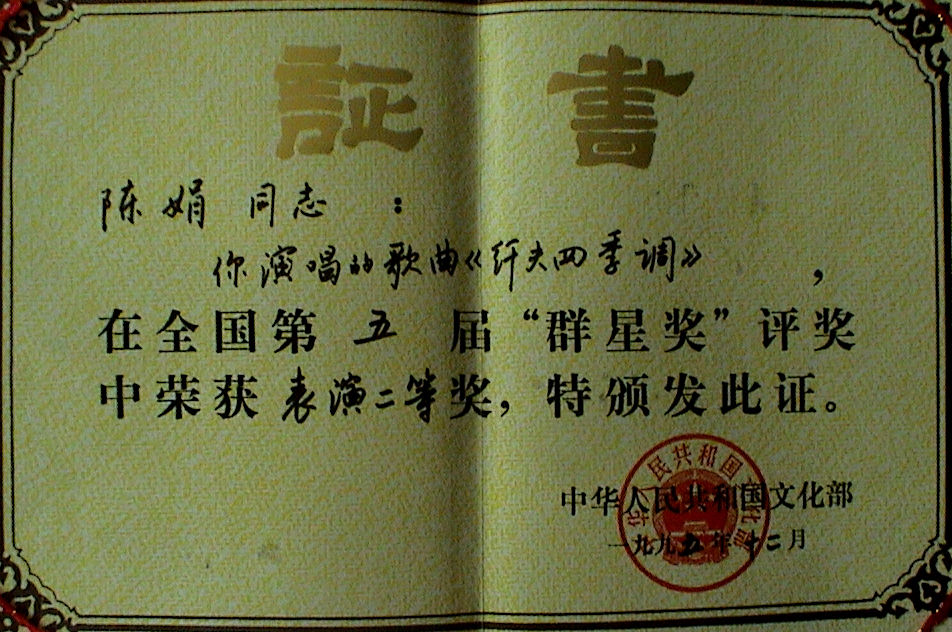 証書
陈娟 同志 :
你演唱的歌曲《纤夫四季调》 ,
在全国第 五 届“群星奖”评奖
中荣获 表演二等奖，特颁发此证。
中华人民共和国文化部
一九九五年十二月